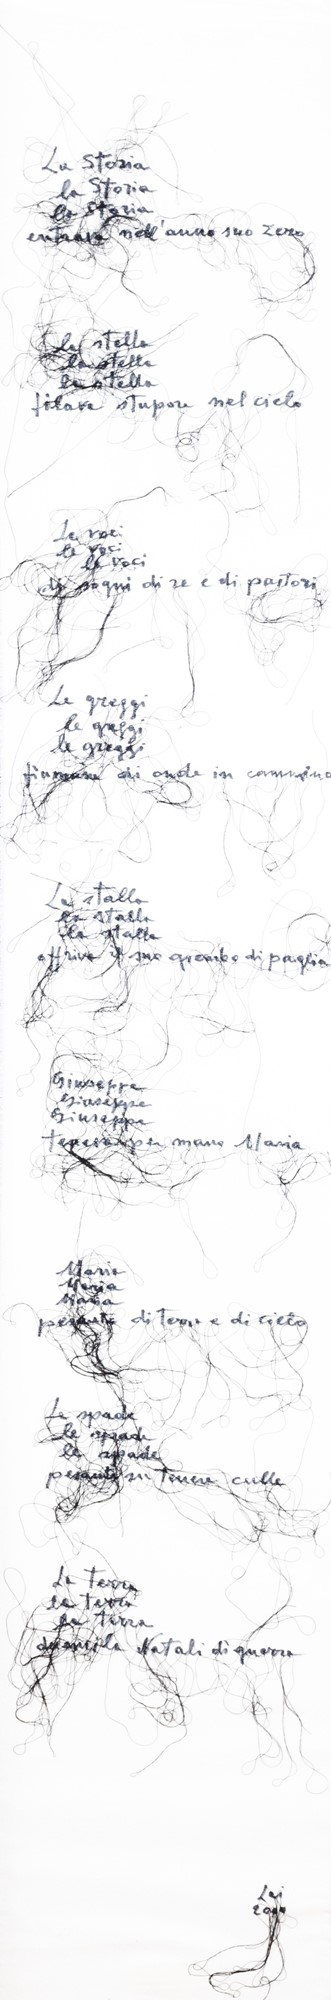 La Storia
la Storia
la Storia
entrava nell'anno suo zero
la stella
la stella
la stella
filava stupore nel cielo
Le voci
le voci
le voci
di sogni di re e di pastori
Le greggi
le greggi
le greggi
fiumana di onde in cammino
La stalla
la stalla
la stalla
offriva il suo grembo di paglia
Giuseppe
Giuseppe
Giuseppe
teneva per mano Maria
Maria
Maria
Maria
pesante di terra e di cielo
Le spade
le spade
le spade
pesanti su tenere culle
La terra
la terra
la terra
Natali di guerra
Lai